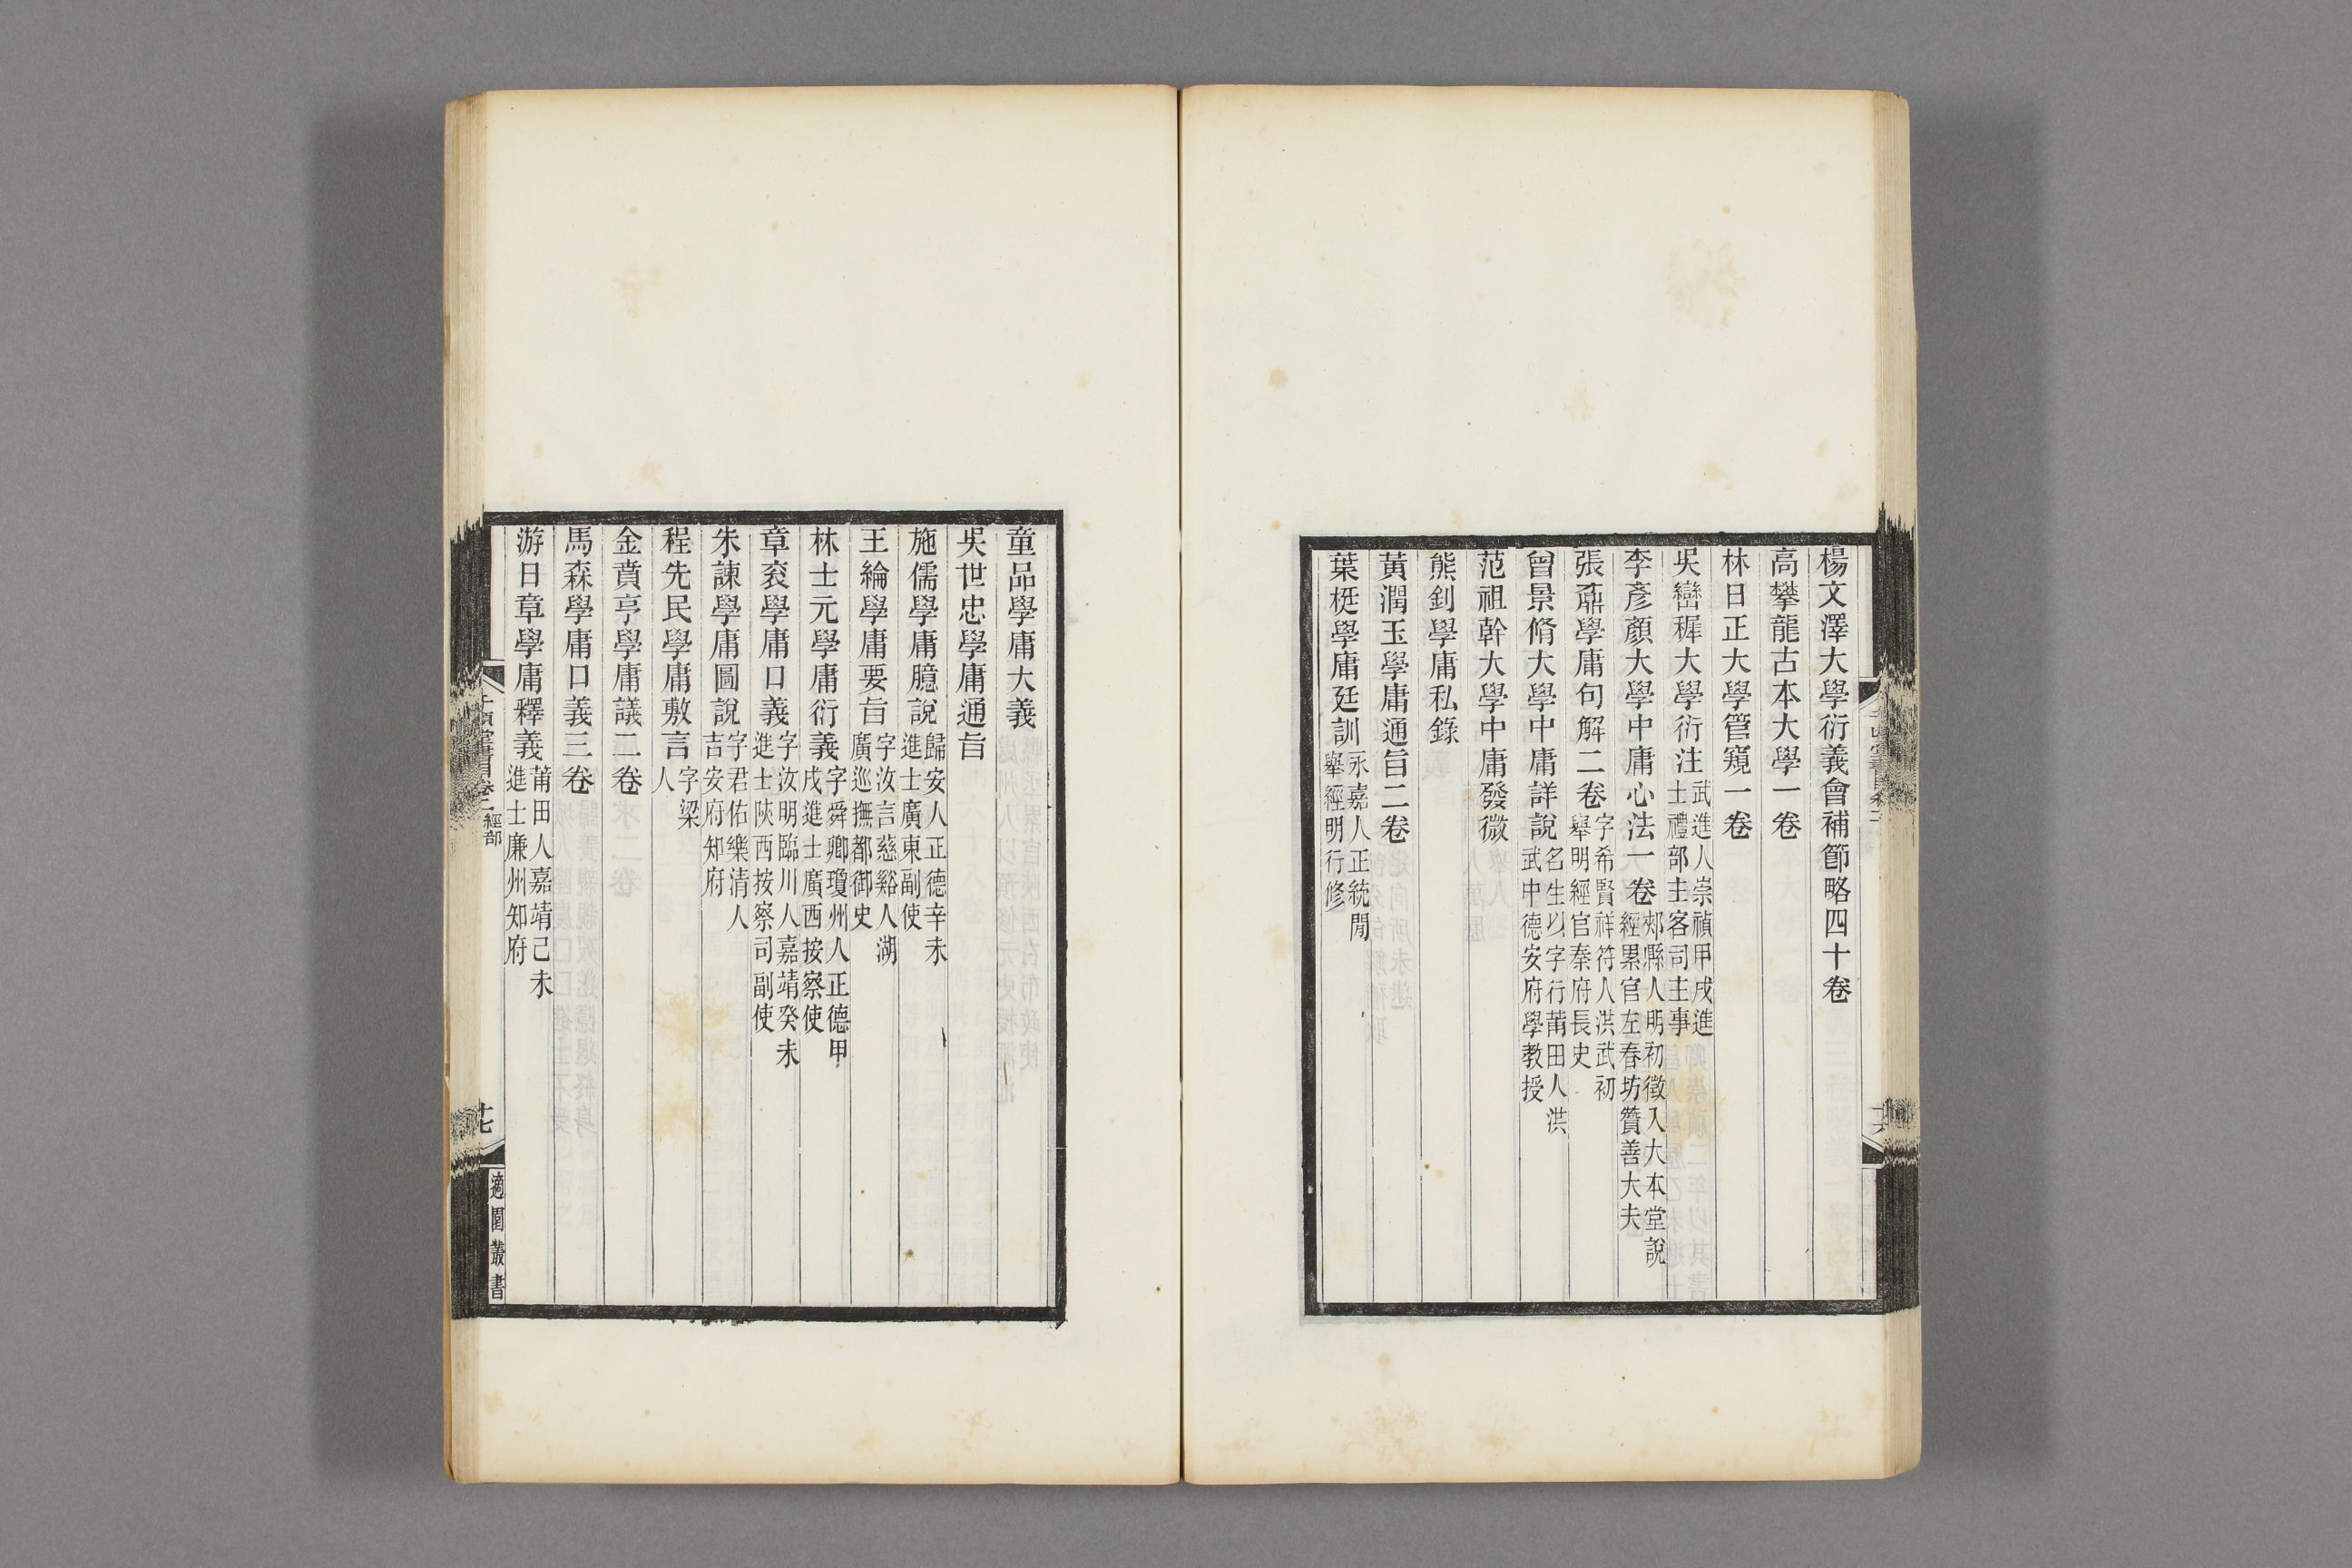 楊文澤大學衍義會補節略四十卷
高攀龍古本大學一卷
林日正大學管窺一卷
吳巒穉大學衍注武進人崇禎甲戌進
士禮部主客司主事
李彥顏大學中庸心法一卷郟縣人明初徵入大本堂說
經累官左春坊贊善大夫
張鼐學庸句解二卷字希賢祥符人洪武初
舉明經官秦府長史
曾景脩大學中庸詳說名生以字行莆田人洪
武中德安府學教授
范祖幹大學中庸發微
熊釗學庸私錄
黃潤玉學庸通旨二卷
葉梃學庸廷訓永嘉人正統閒
舉經明行修
童品學庸大義
吳世忠學庸通旨
施儒學庸臆說歸安人正德辛未
進士廣東副使
王綸學庸要旨字汝言慈谿人湖
廣巡撫都御史
林士元學庸衍義字舜卿瓊州人正德甲
戌進士廣西按察使
章袞學庸口義字汝明臨川人嘉靖癸未
進士陝西按察司副使
朱諫學庸圖說字君佑樂清人
吉安府知府
程先民學庸敷言字梁
人
金賁亨學庸議二卷
馬森學庸口義三卷
游日章學庸釋義莆田人嘉靖己未
進士廉州知府
千頃堂書目卷二 經部
十七
適園叢書